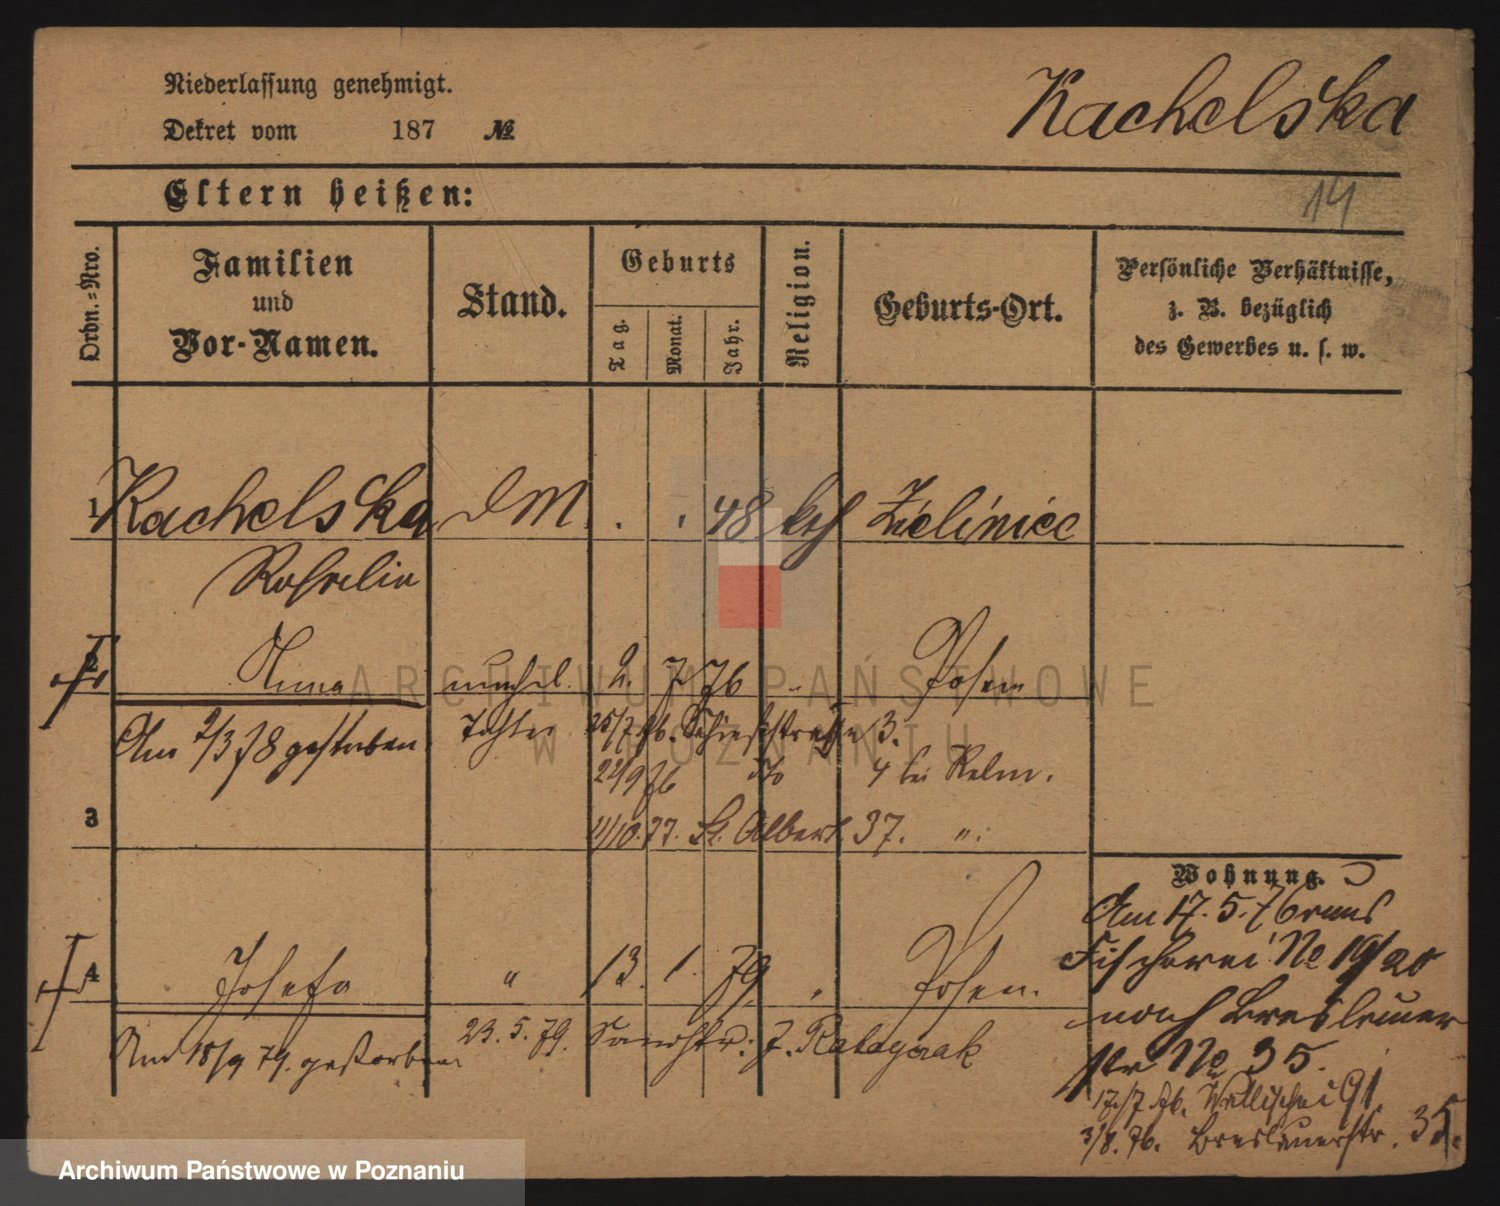 Niederlassung genehmigt.
Dekret vom 187 №
Kachelska
14
Eltern heißen:
Ordn.=Nro.
Familien
und
Vor-Namen.
Stand.
Geburts
Tag.
Monat.
Jahr.
Religion.
Geburts-Ort.
Persönliche Verhältnisse,
z. B. bezüglich
des Gewerbes u. s. w.
1 Kachelska DM . . 48 kth Zieliniec
2 unehel. 2. 7 76 " Posen
Am 2/3 78 gestorben Tochter 25/7 76. Schießstraße 3.
22/9 76 dto 4 bei
3 11/10.77. St. Albert. 37. ".
Wohnung.
Am 17. 5. 76 aus
Fischerei No 19/20
nach Breslauer
str No 35.
17/7 76. Wallischei 91
3/8. 76. Breslauerstr. 35.
4 Josefa " 13. 1. 79. " Posen.
Am 18/9 79. gestorben. 23. 5. 79. Sandstr. 7. Ratayczak
ARCHIWUM PAŃSTWOWE
W POZNANIU
Archiwum Państwowe w Poznaniu